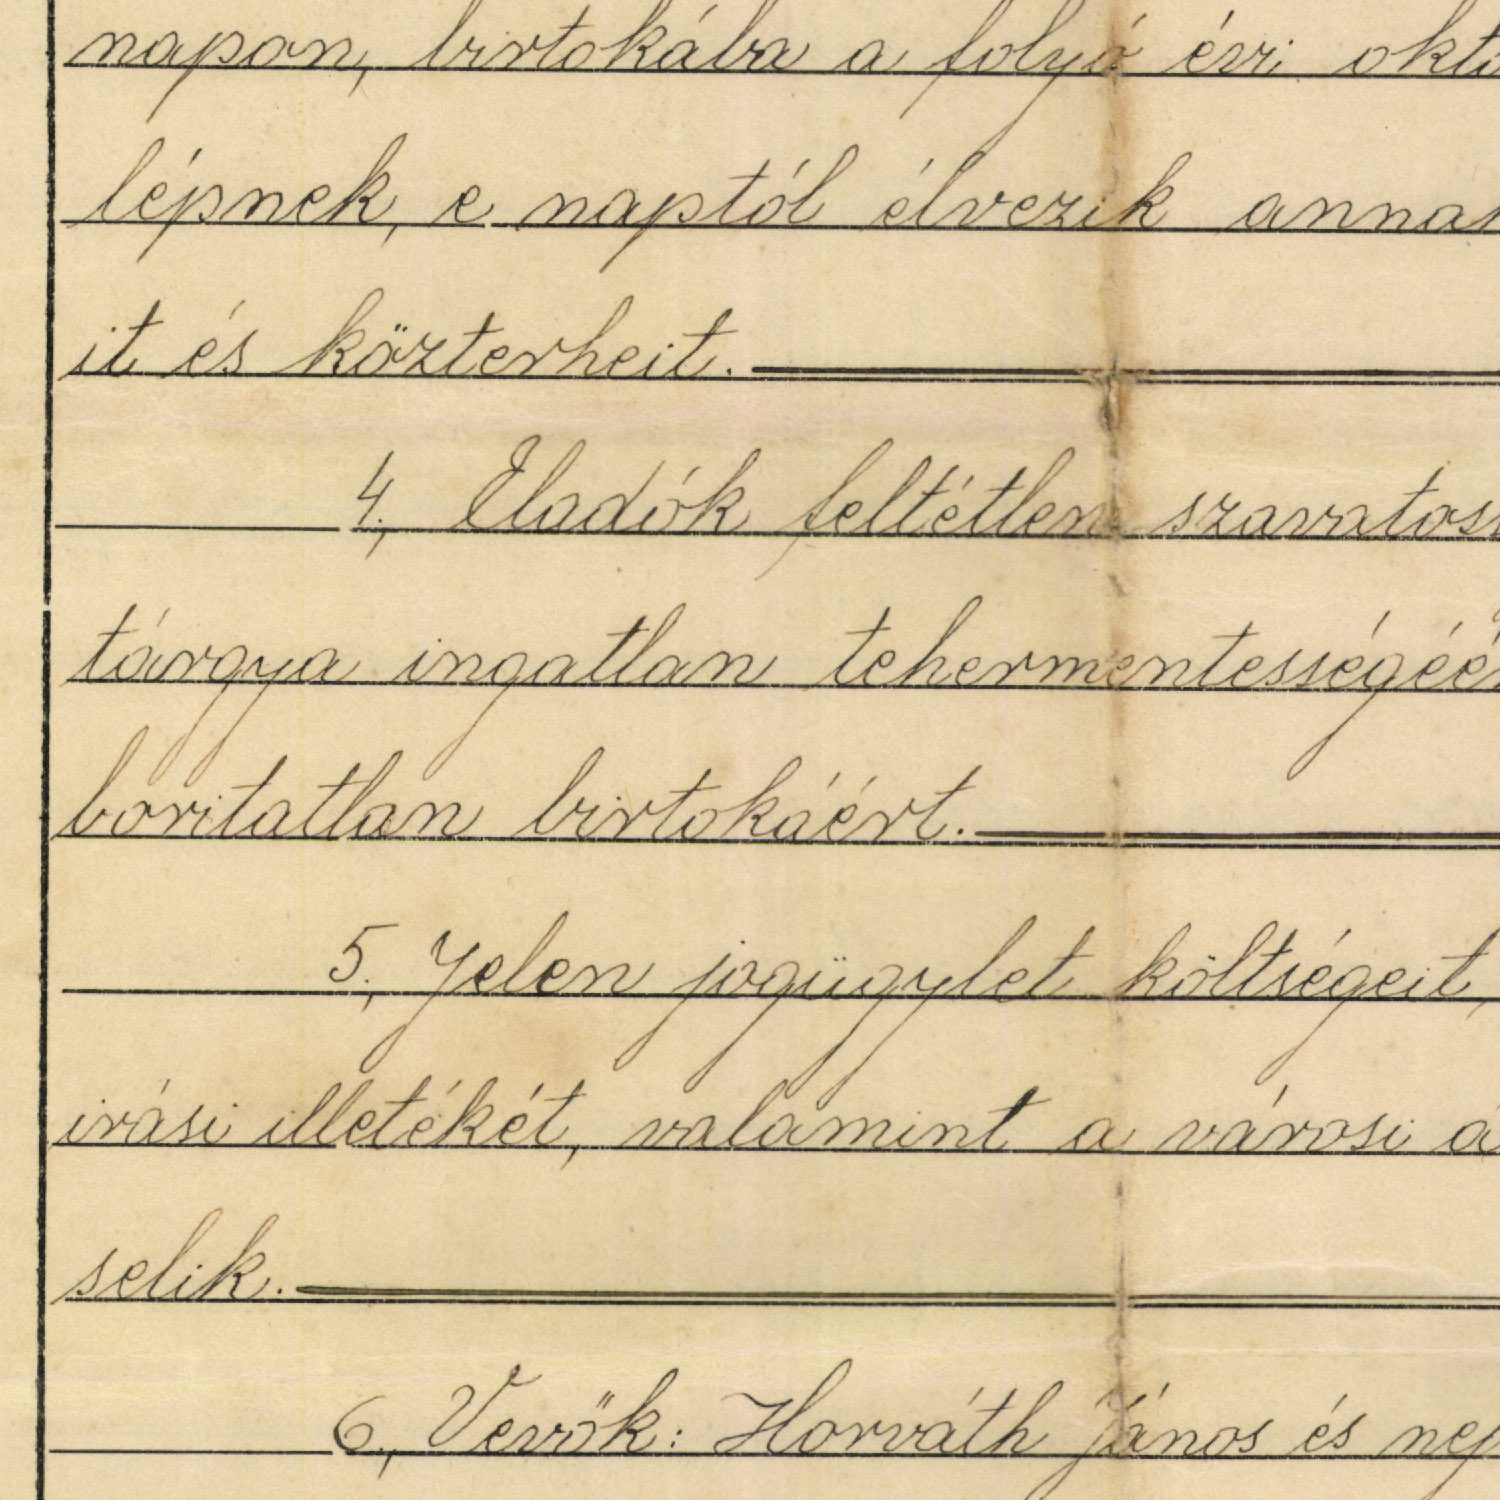 napon, birtokába a folyó évi
lépnek, e naptól élvezik
it és közterheit.
4., Eladók feltétlen
tárgya ingatlan tehermentességéé
boritatlan birtokáért.
5., Jelen jogügylet költségeit,
irási illetékét, valamint a városi
selik.
6., Vevők: Horváth János és